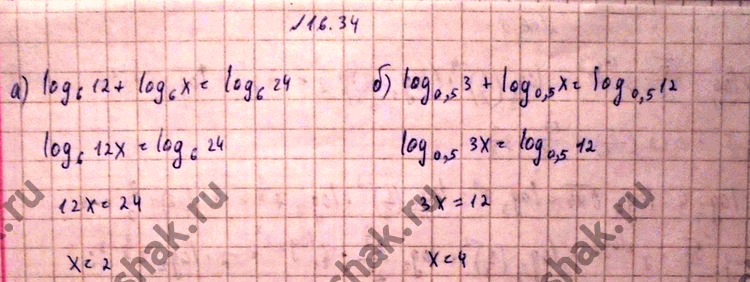 №16.34
а) log₆ 12 + log₆ x = log₆ 24
log₆ 12x = log₆ 24
12x = 24
x = 2
б) log₀,₅ 3 + log₀,₅ x = log₀,₅ 12
log₀,₅ 3x = log₀,₅ 12
3x = 12
x = 4